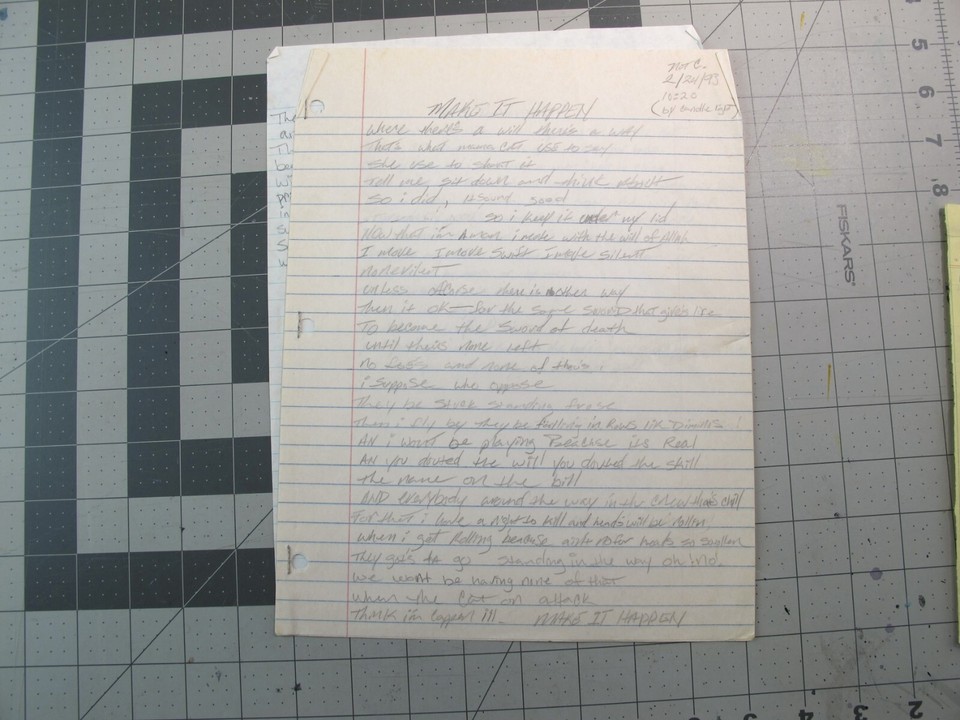 2/24/93
10:20
(by candle light)
MAKE IT HAPPEN
where there's a will there's a way
That's what mama Cat use to say
She use to shout it
Tell me, sit down and think about it
so i did, sound good
so i keep it under my lid
Now that i'm A man i make with the will of Allah
I move I move swift simple silent
nonevilent
unless ofcorse there is nother way
Then it ok for the same sword that gives life
To become the Sword of death
until theirs none left
no and none of this
i Suppose who oppose
They be stuck standing frose
Then i fly by They be falling in Rows like Dinalis !
AN i wont be playing Beacase its Real
AN you douted the will you douted the skill
the name on the bill
AND everybody around the way in the crew thats chill
For that i have a right to kill and heads will be rollin
when i get Rolling beacase so swollen
They gots to go standing in the way oh no,
we wont be having none of that
when the Cat on attack
Think i'm Cappen !!! MAKE IT HAPPEN
FISKARS
5
6
7
8
4
3
2